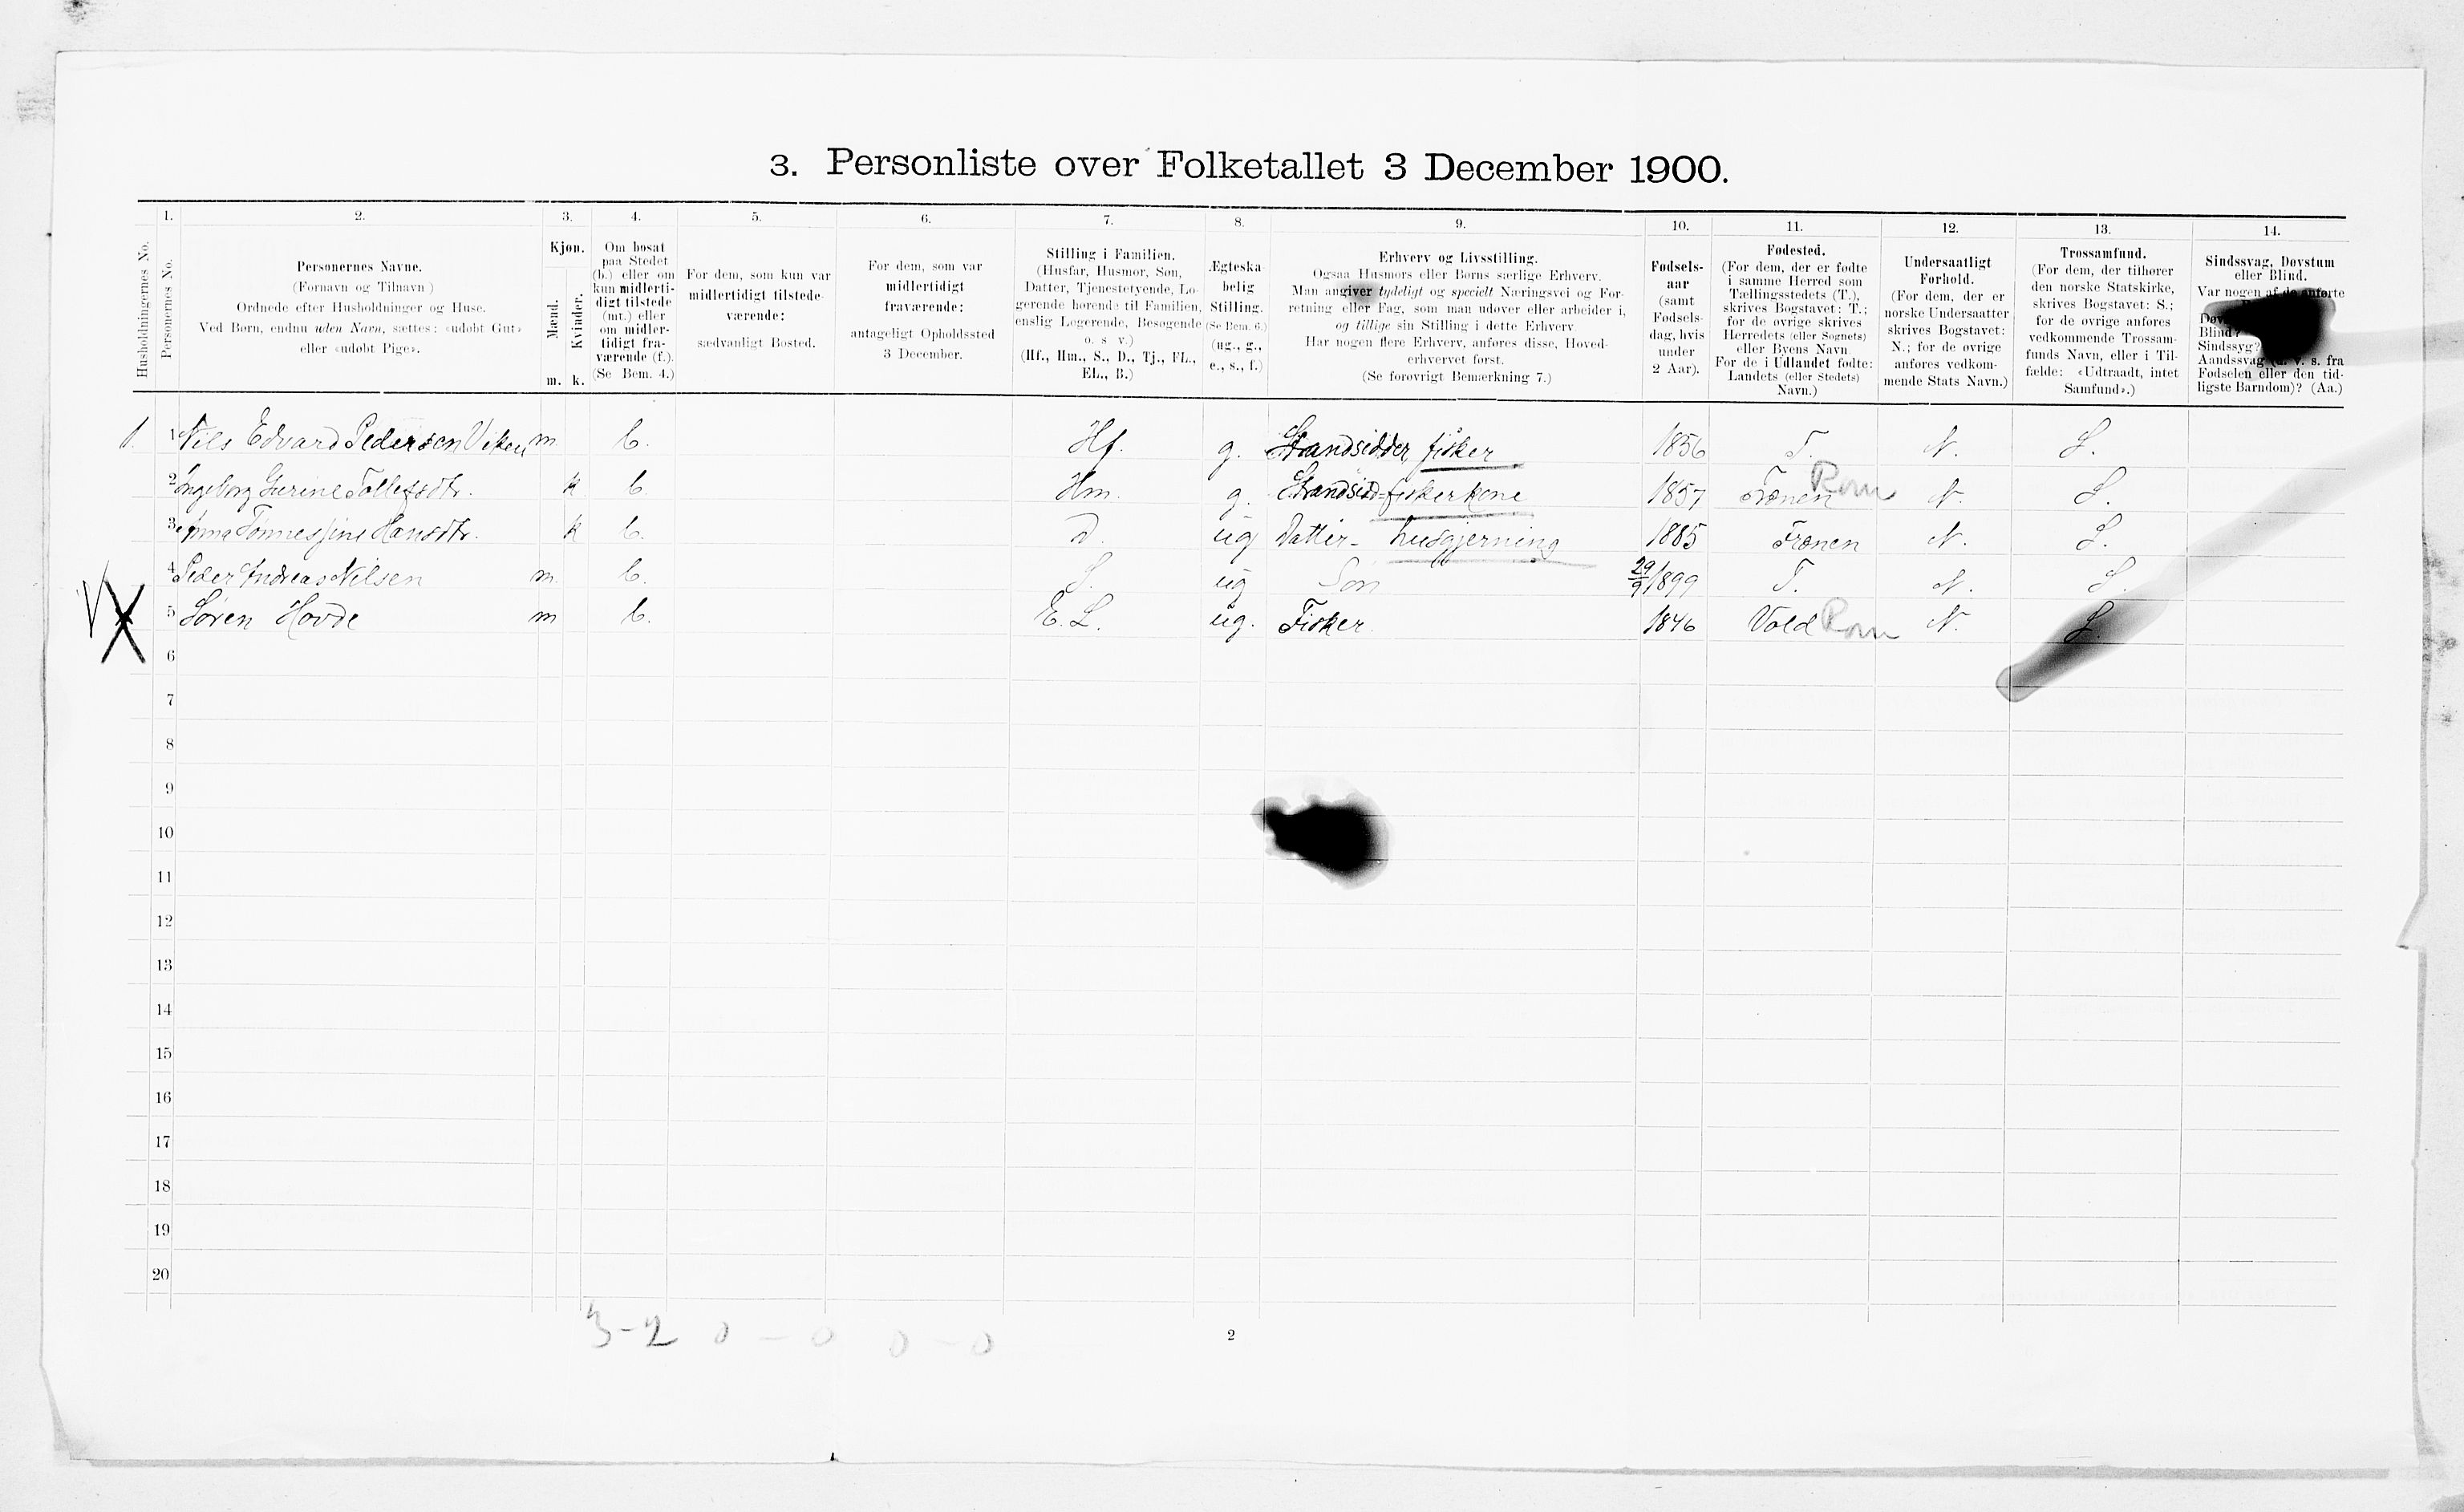 3. Personliste over Folketallet 3 December 1900.
1. 2. 3. 4. 5. 6. 7. 8. 9. 10. 11. 12. 13. 14.
Husholdningernes No.
Personernes No.
Personernes Navne.
(Fornavn og Tilnavn)
Ordnede efter Husholdninger og Huse.
Ved Børn, endnu uden Navn, sættes: «udøbt Gut»
eller «udøbt Pige».
Kjøn.
Mænd.
Kvinder.
m. k.
Om bosat
paa Stedet
(b.) eller om
kun midlerti-
digt tilstede
(mt.) eller
om midler-
tidigt fra-
værende (f.).
(Se Bem. 4.)
For dem, som kun var
midlertidigt tilstede-
værende:
sædvanligt Bosted.
For dem, som var
midlertidigt
fraværende:
antageligt Opholdssted
3 December.
Stilling i Familien.
(Husfar, Husmor, Søn,
Datter, Tjenestetyende, Lo-
gerende hørende til Familien,
enslig Logerende, Besøgende
o. s. v.)
(Hf., Hm., S., D., Tj., FL.,
EL., B.)
Ægteska-
belig
Stilling.
(Se Bem. 6.)
(ug., g.,
e., s., f.)
Erhverv og Livsstilling.
Ogsaa Husmors eller Børns særlige Erhverv.
Man angiver tydeligt og specielt Næringsvei og For-
retning eller Fag, som man udøver eller arbeider i,
og tillige sin Stilling i dette Erhverv
Har nogen flere Erhverv, anføres disse, Hoved-
erhvervet først.
(Se forøvrigt Bemærkning 7.)
Fødsels-
aar
(samt
Fødsels-
dag, hvis
under
2 Aar).
Fødested.
(For dem, der er fødte
i samme Herred som
Tællingsstedets (T.),
skrives Bogstavet: T.;
for de øvrige skrives
Herredets (eller Sognets)
eller Byens Navn
For de i Udlandet fødte:
Landets (eller Stedets)
Navn.)
Undersaatligt
Forhold.
(For dem, der er
norske Undersaatter
skrives Bogstavet:
N.; for de øvrige
anføres vedkom-
mende Stats Navn.)
Trossamfund.
(For dem, der tilhører
den norske Statskirke,
skrives Bogstavet: S.;
for de øvrige anføres
vedkommende Trossam-
funds Navn, eller i Til-
fælde: «Udtraadt, intet
Samfund».)
Sindssvag, Døvstum
eller Blind.
Var nogen af de anførte
Blind?
Sindssyg?
Aandssvag (d. v. s. fra
Fødselen eller den tid-
ligste Barndom)? (Aa.)
1. 1 Nils Edvard Pedersen Viken m b. Hf. g. Strandsidder, fisker 1856 T. N. S.
2 Ingeborg Gurine Tollefsdtr. k b. Hm. g. Strandsid=fiskerkone 1857 Frænen Rom N. S.
3 Anna Tønnesjine Hansdtr. k b. D. ug Datter- husgjerning 1885 Frænen N. S.
4 Peder Andreas Nilsen m. b. S. ug Søn 29/9 1899 T. N. S.
5 Søren Hovde m b. E. L. ug. Fisker. 1846 Vold Rom N. S.
6
7
8
9
10
11
12
13
14
15
16
17
18
19
20
3-2 0 - 0 0 - 0
2